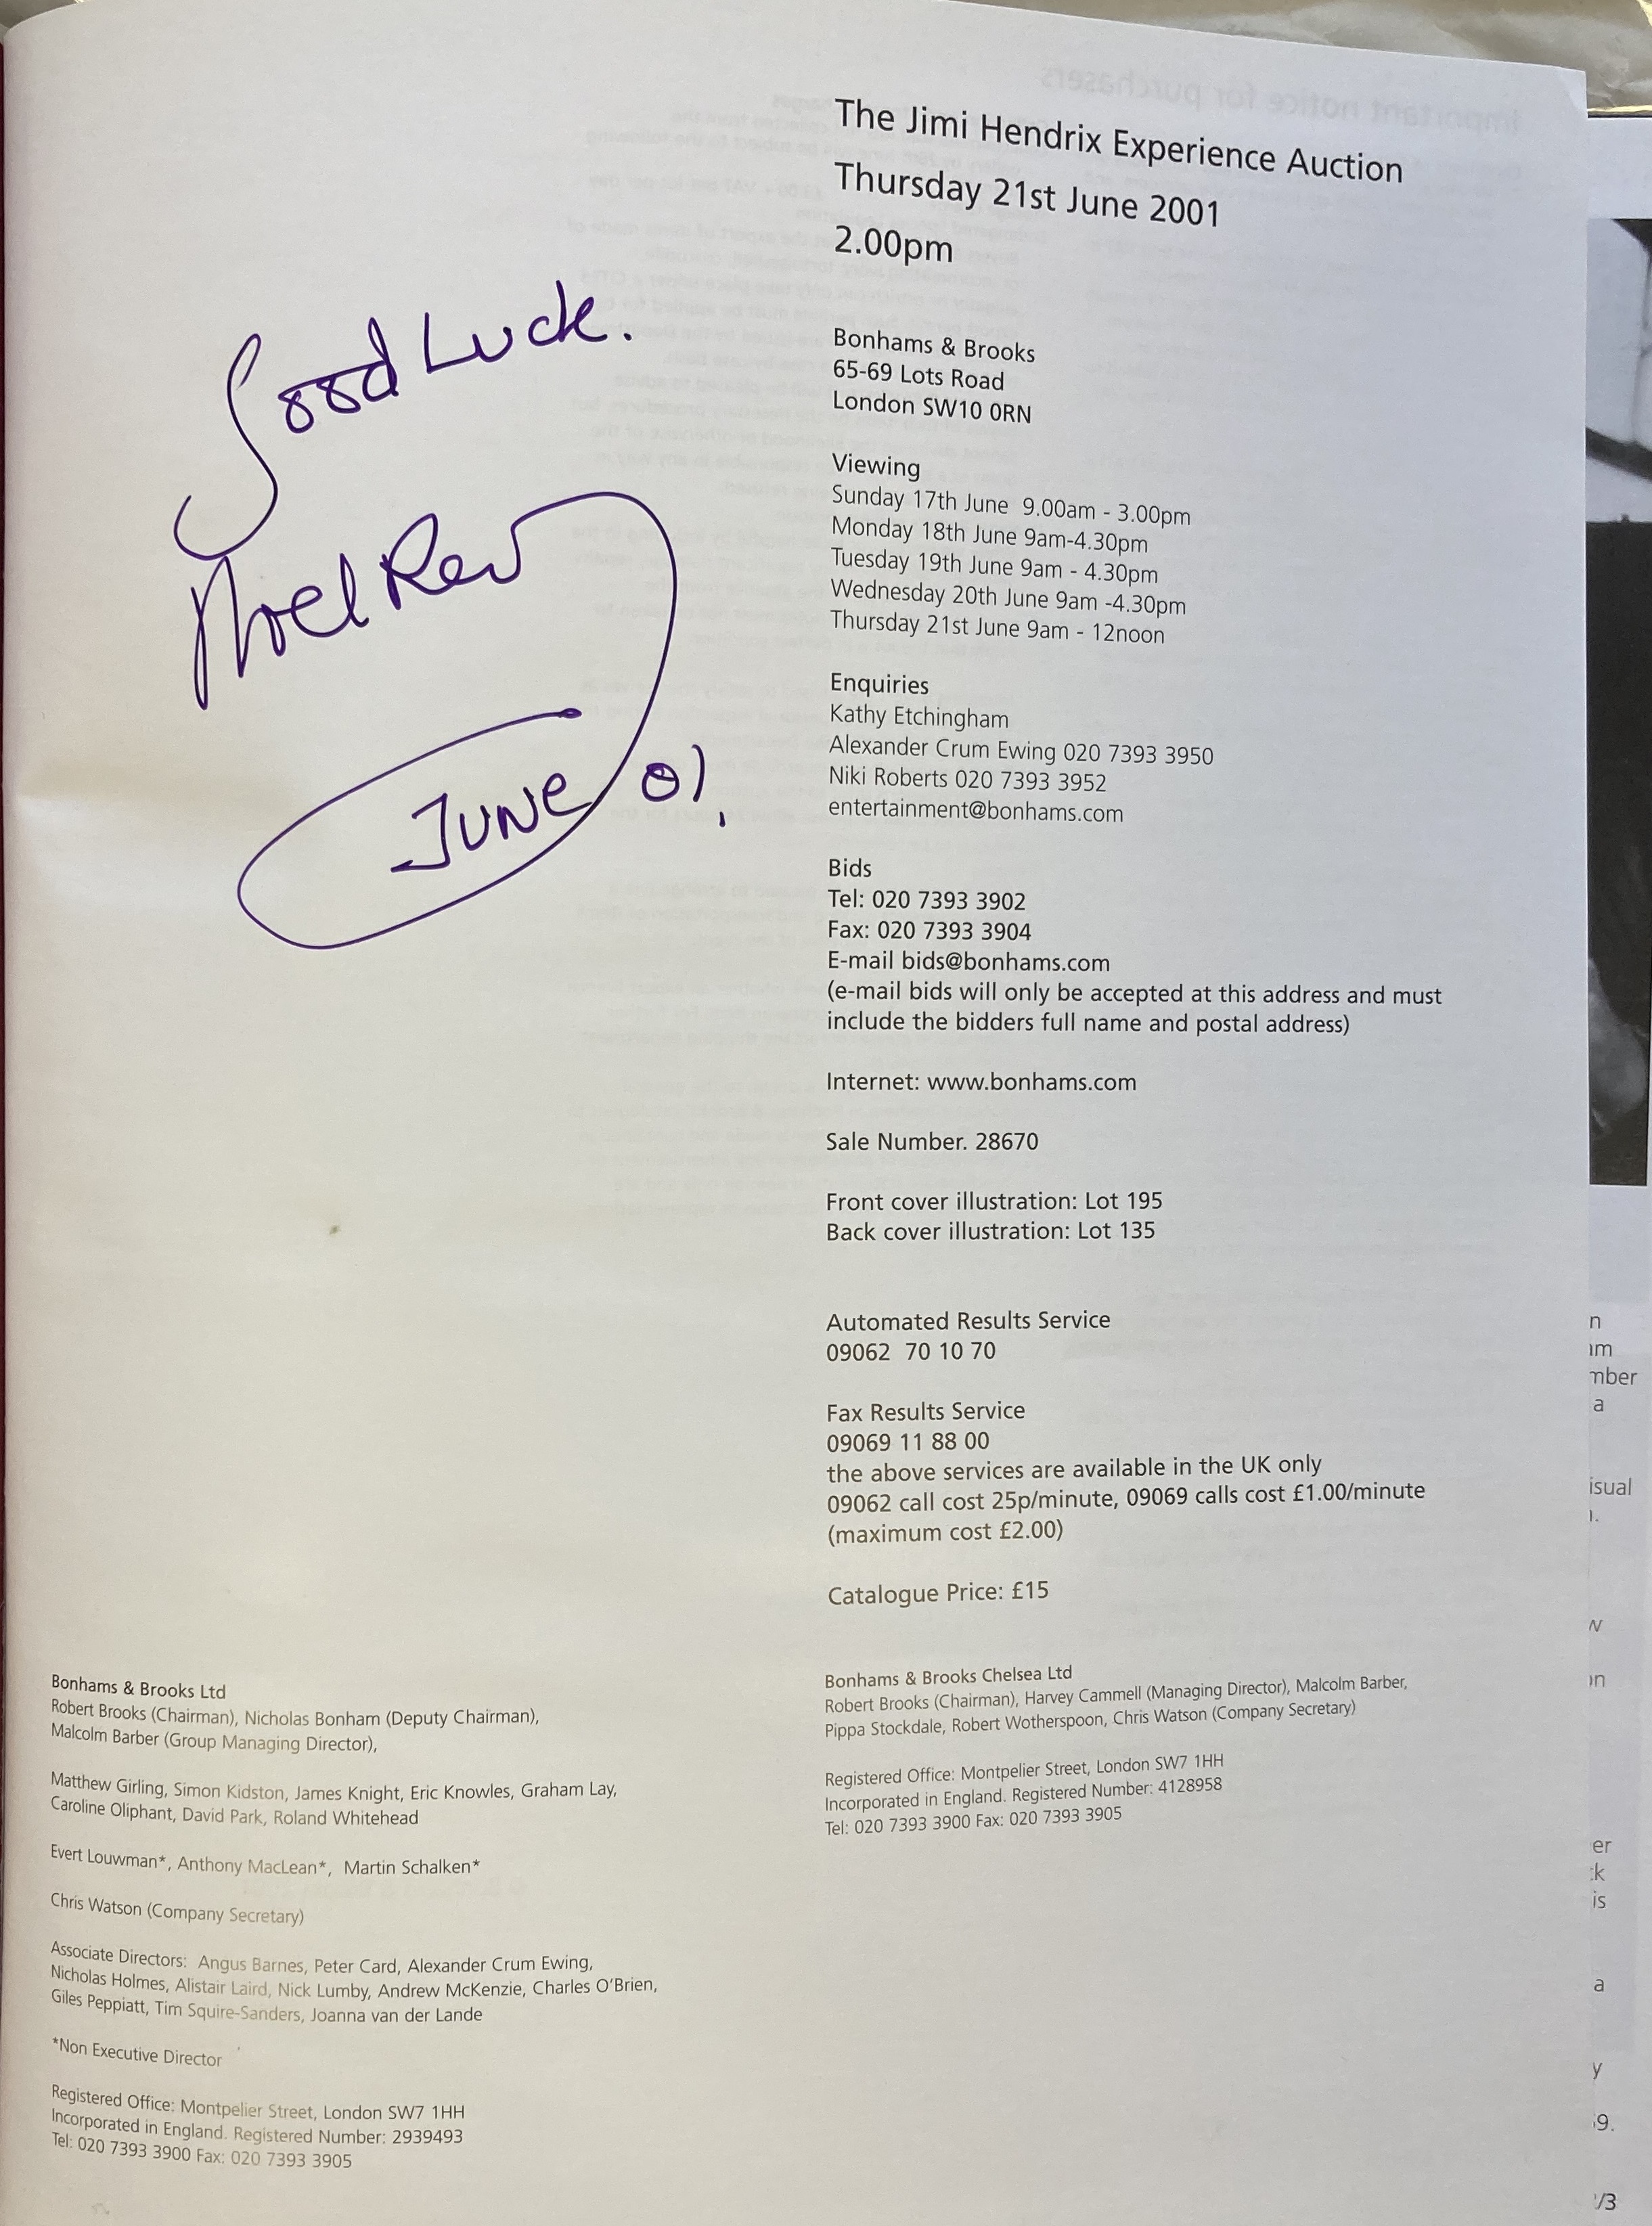 Good Luck.
Noel Red
JUNE 01.
The Jimi Hendrix Experience Auction
Thursday 21st June 2001
2.00pm
Bonhams & Brooks
65-69 Lots Road
London SW10 0RN
Viewing
Sunday 17th June 9.00am - 3.00pm
Monday 18th June 9am-4.30pm
Tuesday 19th June 9am - 4.30pm
Wednesday 20th June 9am -4.30pm
Thursday 21st June 9am - 12noon
Enquiries
Kathy Etchingham
Alexander Crum Ewing 020 7393 3950
Niki Roberts 020 7393 3952
entertainment@bonhams.com
Bids
Tel: 020 7393 3902
Fax: 020 7393 3904
E-mail bids@bonhams.com
(e-mail bids will only be accepted at this address and must
include the bidders full name and postal address)
Internet: www.bonhams.com
Sale Number. 28670
Front cover illustration: Lot 195
Back cover illustration: Lot 135
Automated Results Service
09062 70 10 70
Fax Results Service
09069 11 88 00
the above services are available in the UK only
09062 call cost 25p/minute, 09069 calls cost £1.00/minute
(maximum cost £2.00)
Catalogue Price: £15
Bonhams & Brooks Ltd
Robert Brooks (Chairman), Nicholas Bonham (Deputy Chairman),
Malcolm Barber (Group Managing Director),
Matthew Girling, Simon Kidston, James Knight, Eric Knowles, Graham Lay,
Caroline Oliphant, David Park, Roland Whitehead
Evert Louwman*, Anthony MacLean*, Martin Schalken*
Chris Watson (Company Secretary)
Associate Directors: Angus Barnes, Peter Card, Alexander Crum Ewing,
Nicholas Holmes, Alistair Laird, Nick Lumby, Andrew McKenzie, Charles O'Brien,
Giles Peppiatt, Tim Squire-Sanders, Joanna van der Lande
*Non Executive Director
Registered Office: Montpelier Street, London SW7 1HH
Incorporated in England. Registered Number: 2939493
Tel: 020 7393 3900 Fax: 020 7393 3905
Bonhams & Brooks Chelsea Ltd
Robert Brooks (Chairman), Harvey Cammell (Managing Director), Malcolm Barber,
Pippa Stockdale, Robert Wotherspoon, Chris Watson (Company Secretary)
Registered Office: Montpelier Street, London SW7 1HH
Incorporated in England. Registered Number: 4128958
Tel: 020 7393 3900 Fax: 020 7393 3905